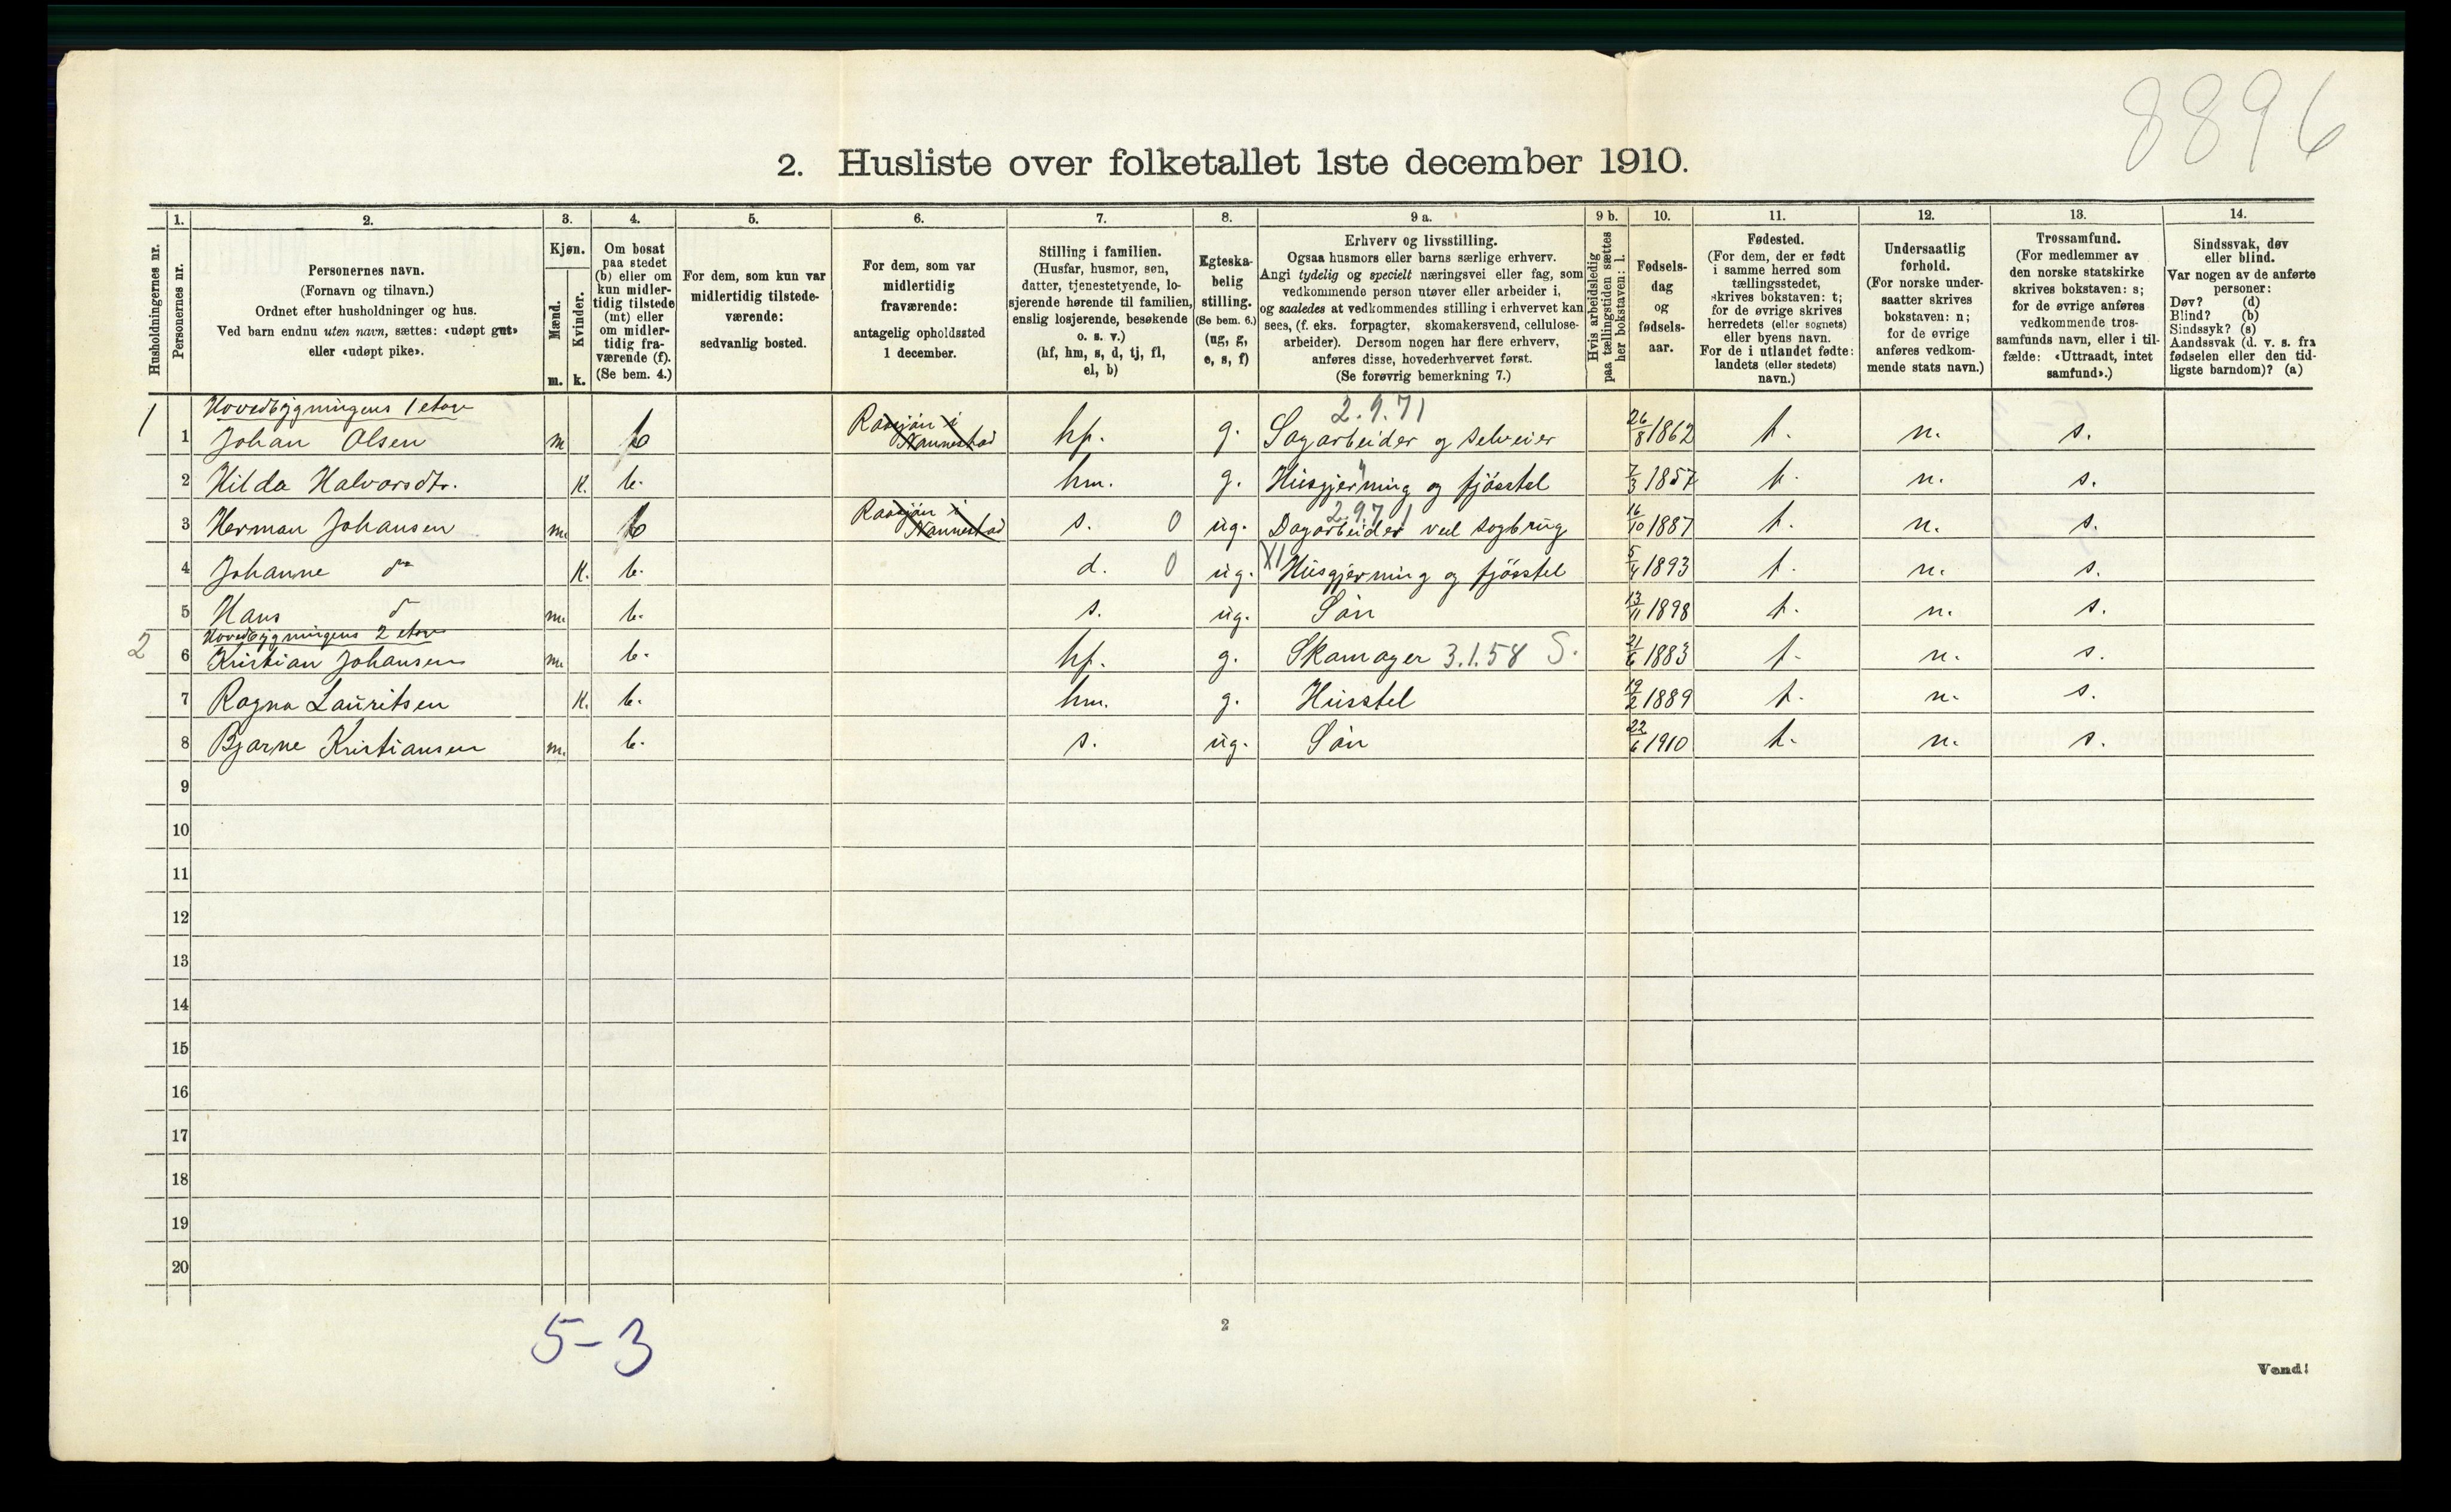 8896
2. Husliste over folketallet 1ste december 1910.
1. 2. 3. 4. 5. 6. 7. 8. 9 a. 9 b. 10. 11. 12. 13. 14.
Husholdningernes nr.
Personernes nr.
Personernes navn.
(Fornavn og tilnavn.)
Ordnet efter husholdninger og hus.
Ved barn endnu uten navn, sættes: «udøpt gut»
eller «udøpt pike».
Kjøn.
Mænd.
Kvinder.
m. k.
Om bosat
paa stedet
(b) eller om
kun midler-
tidig tilstede
(mt) eller
om midler-
tidig fra-
værende (f).
(Se bem. 4.)
For dem, som kun var
midlertidig tilstede-
værende:
sedvanlig bosted.
For dem, som var
midlertidig
fraværende:
antagelig opholdssted
1 december.
Stilling i familien.
(Husfar, husmor, søn,
datter, tjenestetyende, lo-
sjerende hørende til familien,
enslig losjerende, besøkende
o. s. v.)
(hf, hm, s, d, tj, fl,
el, b)
Egteska-
belig
stilling.
(Se bem. 6.)
(ug, g,
e, s, f)
Erhverv og livsstilling.
Ogsaa husmors eller barns særlige erhverv.
Angi tydelig og specielt næringsvei eller fag, som
vedkommende person utøver eller arbeider i,
og saaledes at vedkommendes stilling i erhvervet kan
sees, (f. eks. forpagter, skomakersvend, cellulose-
arbeider). Dersom nogen har flere erhverv,
anføres disse, hovederhvervet først.
(Se forøvrig bemerkning 7.)
Hvis arbeidsledig
paa tællingstiden sættes
her bokstaven: l.
Fødsels-
dag
og
fødsels-
aar.
Fødested.
(For dem, der er født
i samme herred som
tællingsstedet,
skrives bokstaven: t;
for de øvrige skrives
herredets (eller sognets)
eller byens navn.
For de i utlandet fødte:
landets (eller stedets)
navn.)
Undersaatlig
forhold.
(For norske under-
saatter skrives
bokstaven: n;
for de øvrige
anføres vedkom-
mende stats navn.)
Trossamfund.
(For medlemmer av
den norske statskirke
skrives bokstaven: s;
for de øvrige anføres
vedkommende tros-
samfunds navn, eller i til-
fælde: «Uttraadt, intet
samfund».)
Sindssvak, døv
eller blind.
Var nogen av de anførte
personer:
Døv? (d)
Blind? (b)
Sindssyk? (s)
Aandssvak (d. v. s. fra
fødselen eller den tid-
ligste barndom)? (a)
Hovedbygningens 1 etave 2.9.71
1 1 Johan Olsen m b i Nannestad hf. g. Sagarbeider og selveier 26/8 1862 t. n. s.
2 Hilda Halvorsdtr. K. b. hm. g. Husgjerning og fjösstel 7/3 1857 t. n. s.
2.9.71
3 Herman Johansen m. b i Nannestad s. 0 ug. Dagarbeider ved sagbrug 16/10 1887 t. n. s.
4 Johanne do K. b. d. 0 ug. XI Husgjerning og fjösstel 5/4 1893 t. n. s.
5 Hans do m. b. s. ug. Sön 13/11 1898 t. n. s.
Hovedbygningens 2 etave
2 6 Kristian Johansen m. b. hf. g. Skamager 3.1.58 S. 21/6 1883 t. n. s.
7 Ragna Lauritsen K. b. hm. g. Husstel 19/2 1889 t. n. s.
8 Bjarne Kristiansen m. b. s. ug. Sön 22/6 1910 t. n. s.
9
10
11
12
13
14
15
16
17
18
19
20
5-3
2
Vend!